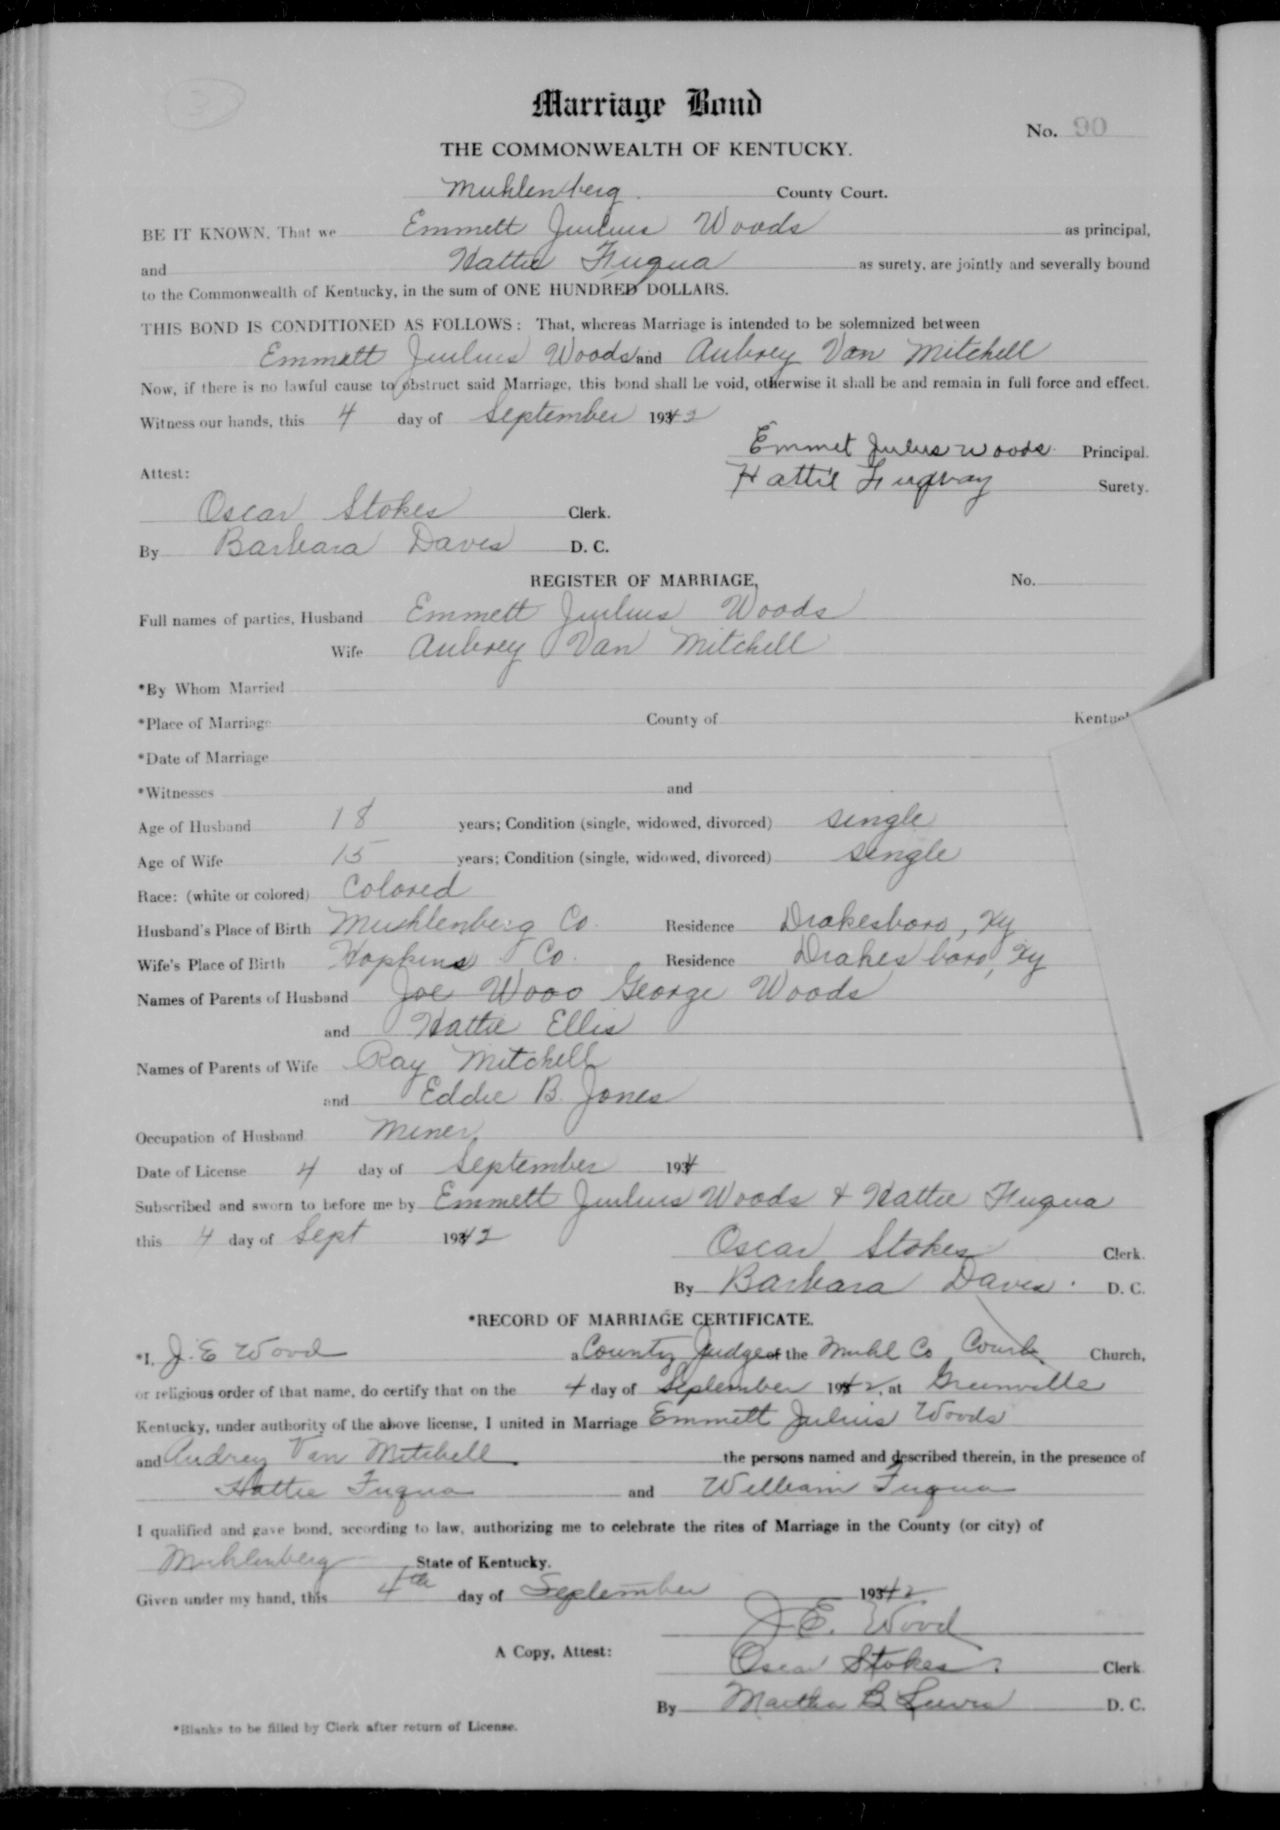 Marriage Bond
No. 90
THE COMMONWEALTH OF KENTUCKY.
Muhlenberg County Court.
BE IT KNOWN, That we Emmett Julius Woods as principal,
and Hattie Fuqua as surety, are jointly and severally bound
to the Commonwealth of Kentucky, in the sum of ONE HUNDRED DOLLARS.
THIS BOND IS CONDITIONED AS FOLLOWS: That, whereas Marriage is intended to be solemnized between
Emmett Julius Woods and Aubrey Van Mitchell
Now, if there is no lawful cause to obstruct said Marriage, this bond shall be void, otherwise it shall be and remain in full force and effect.
Witness our hands, this 4 day of September 1942
Emmet Julius Woods Principal.
Attest:
Hattie Fuqway Surety.
Oscar Stokes Clerk.
By Barbara Daves D. C.
REGISTER OF MARRIAGE, No.
Full names of parties, Husband Emmett Julius Woods
Wife Aubrey Van Mitchell
*By Whom Married
*Place of Marriage County of Kentuc
*Date of Marriage
*Witnesses and
Age of Husband 18 years; Condition (single, widowed, divorced) single
Age of Wife 15 years; Condition (single, widowed, divorced) single
Race: (white or colored) Colored
Husband's Place of Birth Muhlenberg Co. Residence Drakesboro, Ky
Wife's Place of Birth Hopkins Co. Residence Drakesboro, Ky
Names of Parents of Husband Joe Wooo George Woods
and Hattie Ellis
Names of Parents of Wife Ray Mitchell
and Eddie B. Jones
Occupation of Husband Miner
Date of License 4 day of September 194
Subscribed and sworn to before me by Emmett Julius Woods & Hattie Fuqua
this 4 day of Sept 1942
Oscar Stokes Clerk.
By Barbara Daves. D. C.
*RECORD OF MARRIAGE CERTIFICATE.
*I, J. E Wood a County Judge of the Muhl Co Court Church,
or religious order of that name, do certify that on the 4 day of September 1942, at Greenville
Kentucky, under authority of the above license, I united in Marriage Emmett Julius Woods
and Audrey Van Mitchell the persons named and described therein, in the presence of
Hattie Fuqua and William Fuqua
I qualified and gave bond, according to law, authorizing me to celebrate the rites of Marriage in the County (or city) of
Muhlenberg State of Kentucky.
Given under my hand, this 4th day of September 1942
J. E. Wood
A Copy, Attest:
Oscar Stokes. Clerk
By Martha B D. C.
*Blanks to be filled by Clerk after return of License.